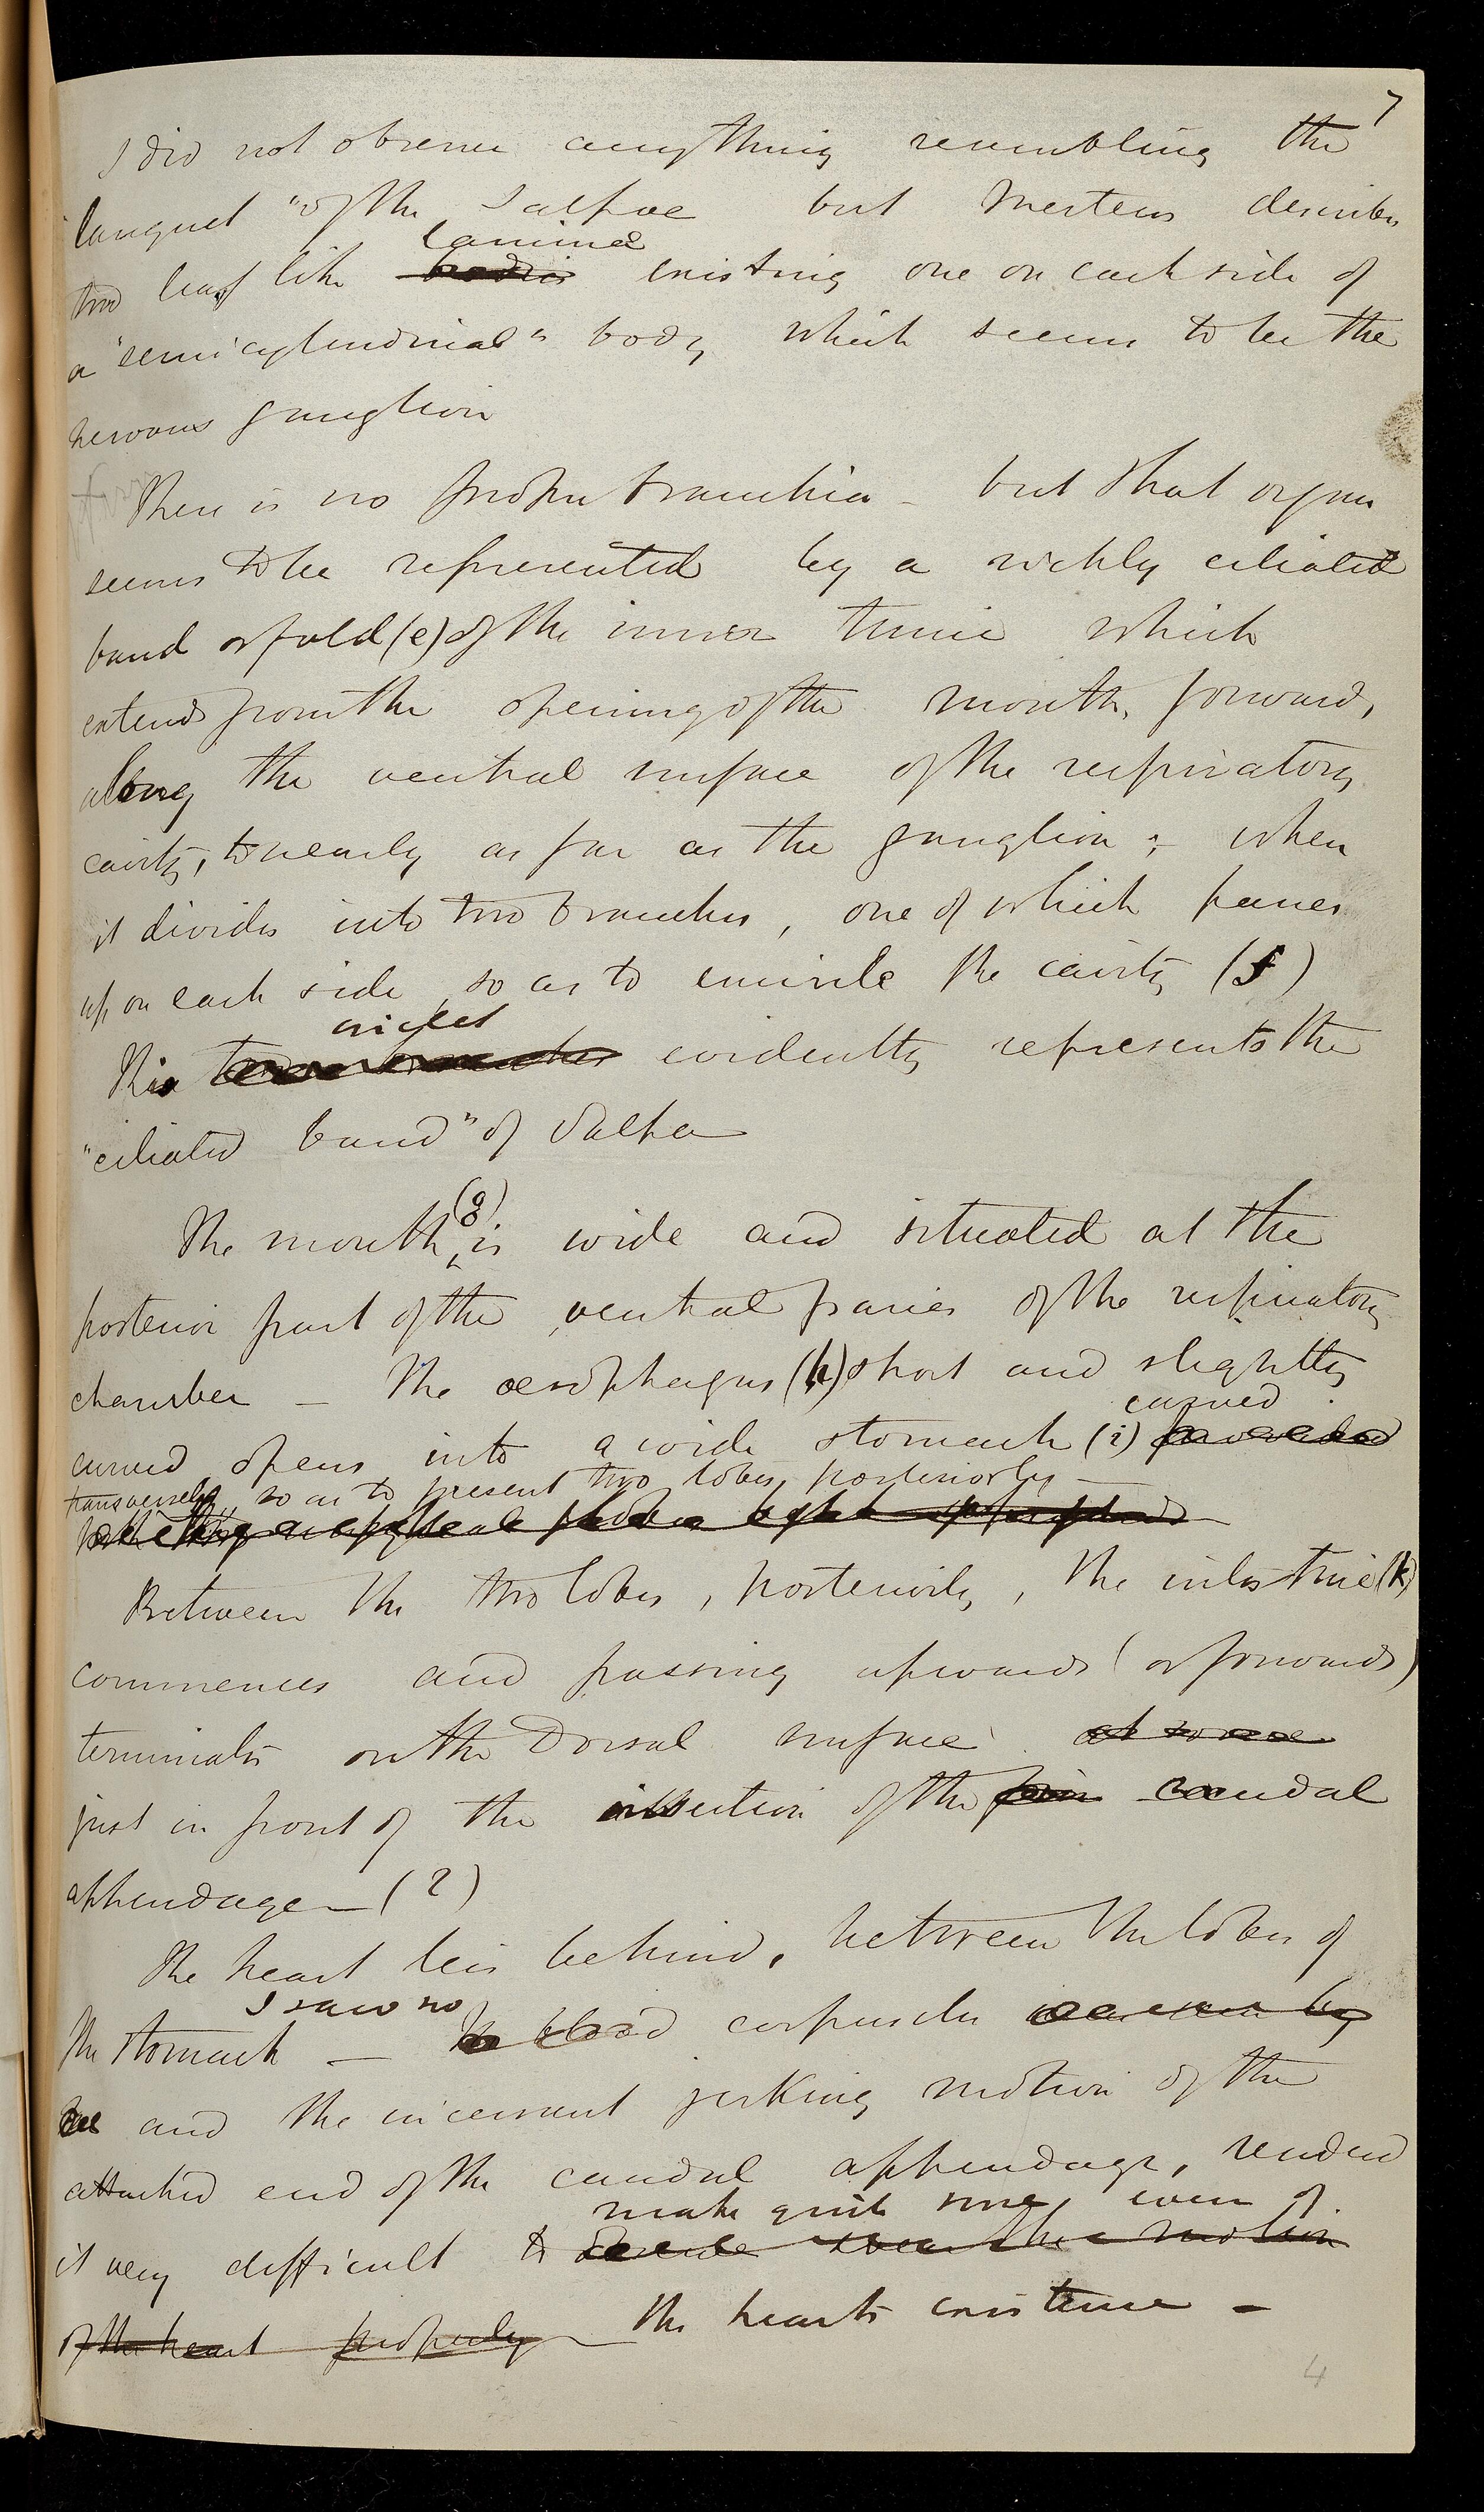 7
I did not observe anything resembling the
"languet" of the Salpae but Mertens describes
laminae
two leaf like bodies existing one on each side of
a "semicylindrical" body which seems to be the
nervous ganglion
There is no proper branchia - but that organ
seems to be represented by a richly ciliated
band or fold (e) of the inner tunic which
extends from the opening of the mouth, forward,
along the ventral surface of the respiratory
cavity, to nearly as far as the ganglion; when
it divides into two branches, one of which passes
up on each side, so as to encircle the cavity (f)
circlet
This evidently represents the
"ciliated band" of Salpa
(g)
The mouth is wide and situated at the
posterior part of the ventral paries of the respiratory
chamber - The oesophagus (h) short and slightly
curved
curved opens into a wide stomach (i)
transversely so as to present two lobes posteriorly -
Between the two lobes, posteriorly, the intestine (k)
commences and passing upwards (or forwards)
terminates on the Dorsal surface
just in front of the insertion of the caudal
appendage - (l)
The heart lies behind, between the lobes of
I saw no
the stomach - blood corpuscles
and the incessant jerking motion of the
attached end of the caudal appendage, rendered
make quite sure, even of
it very difficult to decide upon the motion
of the heart properly the hearts existence -
4